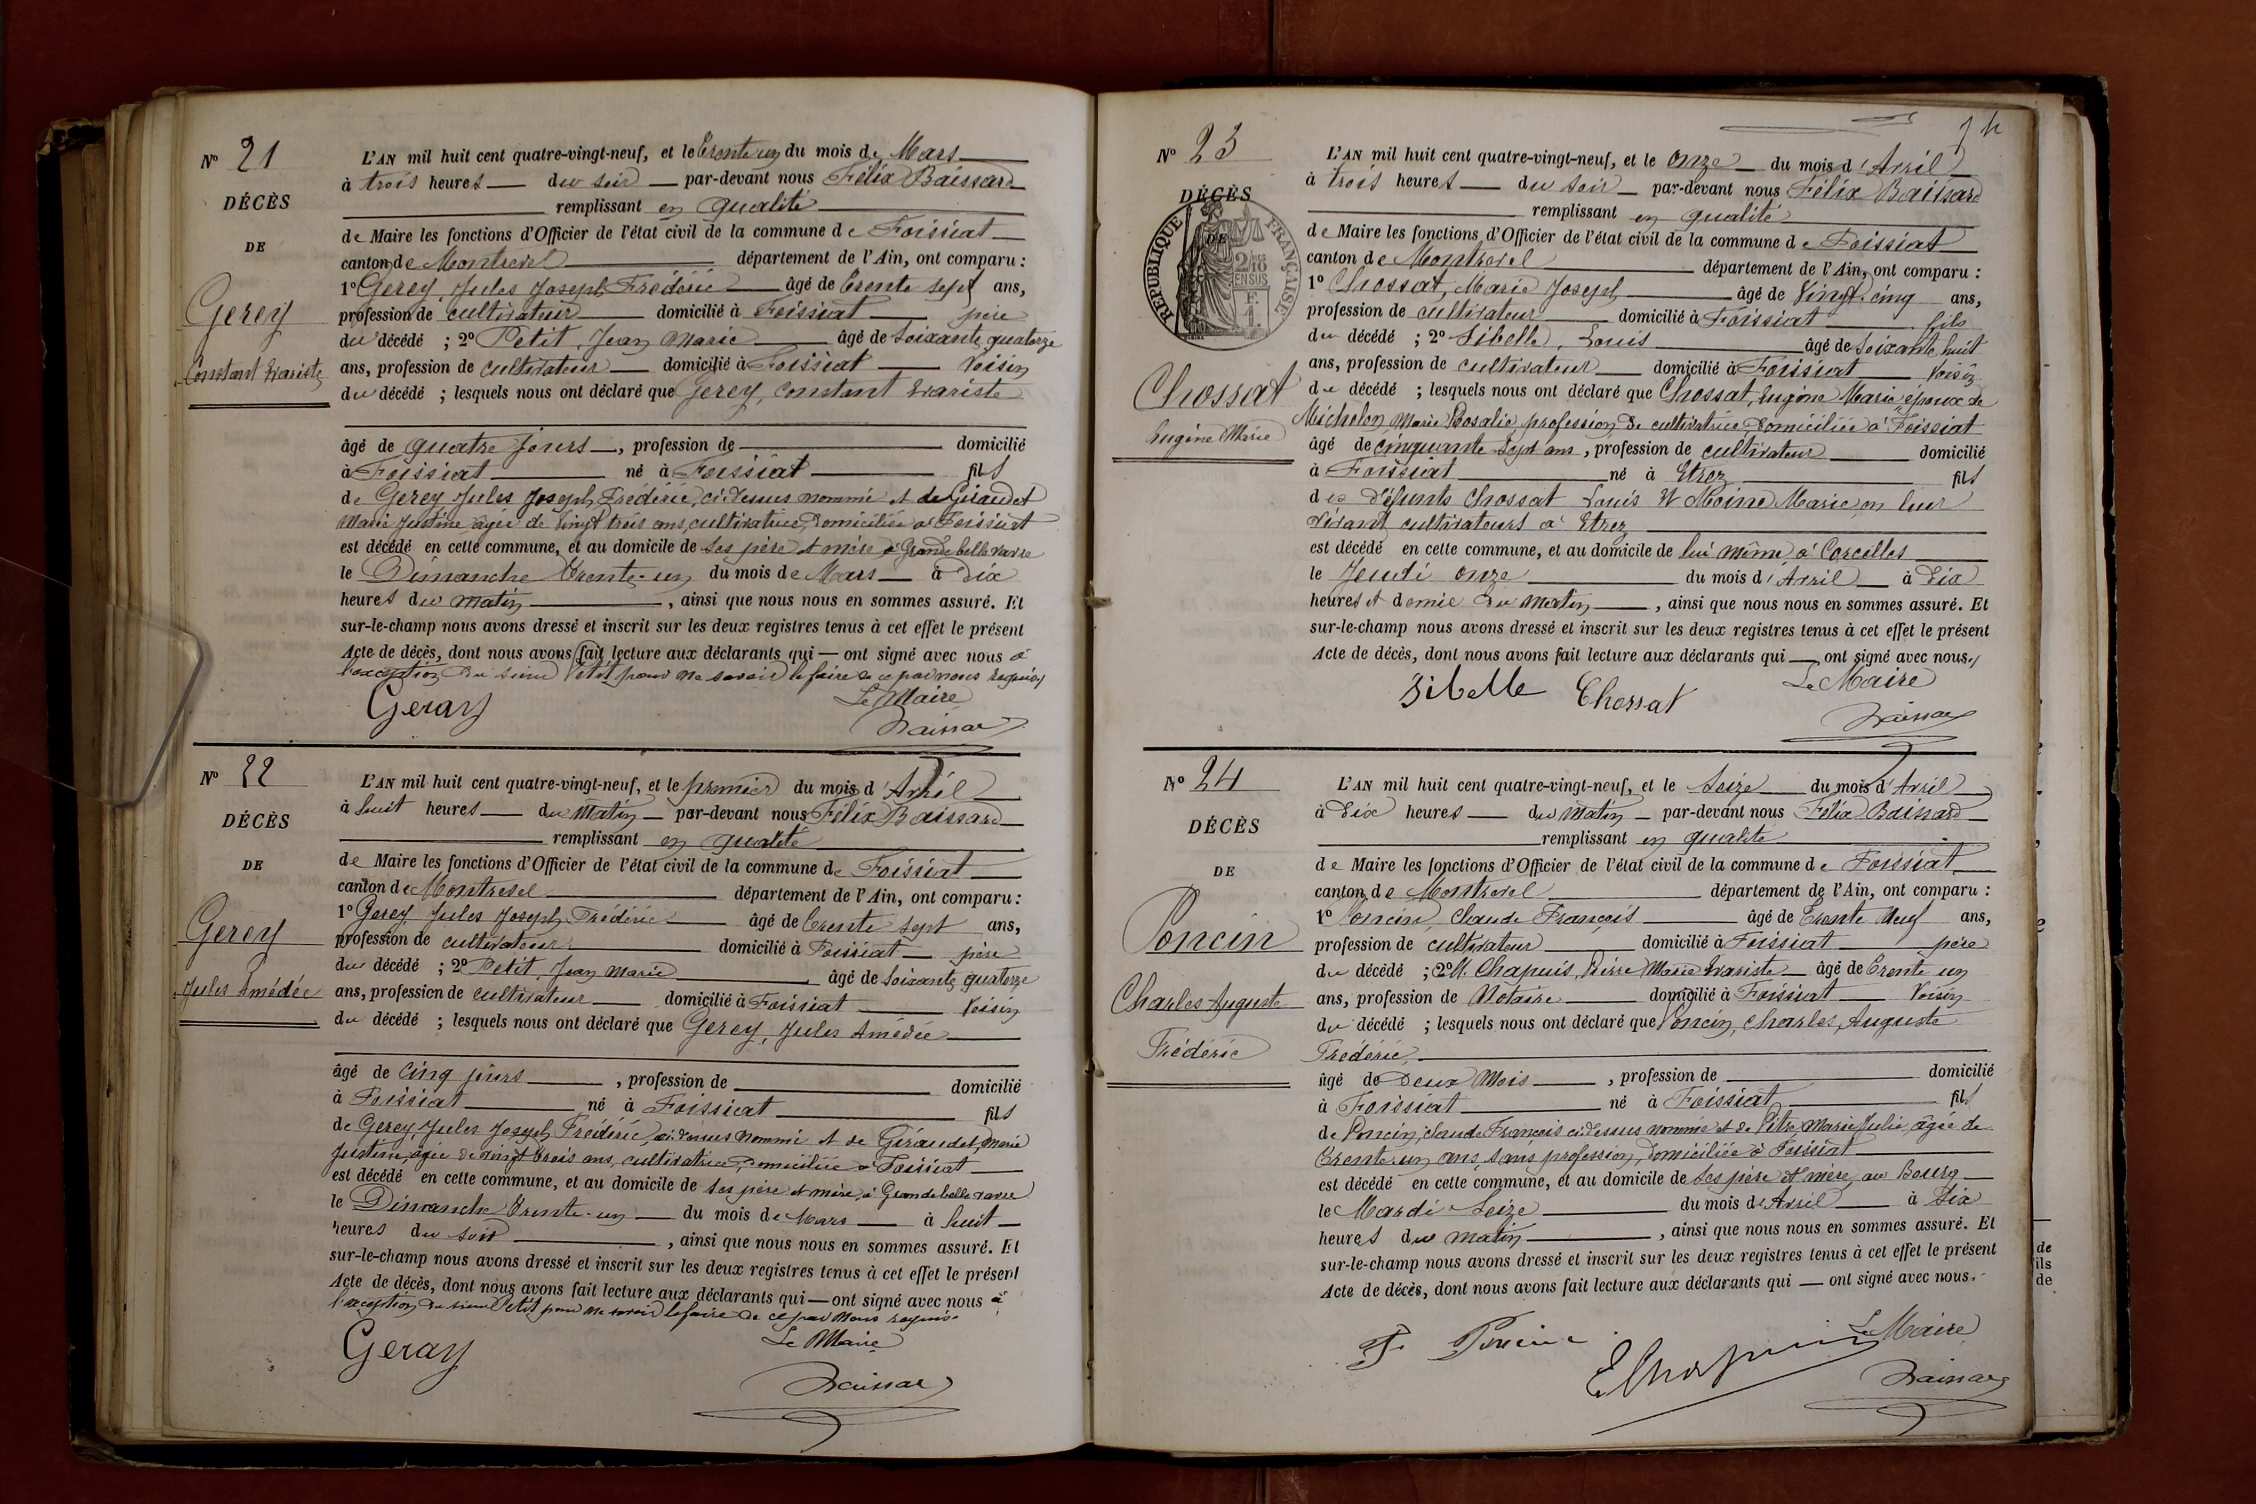 N° 21
DÉCÈS
DE
Gerey
Constant Evariste
L'AN mil huit cent quatre-vingt-neuf, et le trente un du mois de Mars
à trois heures du soir par-devant nous Félix Baissard
remplissant en qualité
de Maire les fonctions d'Officier de l'état civil de la commune de Foissiat
canton de Montrevel département de l'Ain, ont comparu :
1° Gerey, Jules Joseph Frédéric âgé de trente sept ans,
profession de cultivateur domicilié à Foissiat père
du décédé ; 2° Petit, Jean Marie âgé de soixante quatorze
ans, profession de cultivateur domicilié à Foissiat voisin
du décédé ; lesquels nous ont déclaré que Gerey, Constant Evariste
âgé de quatre jours, profession de domicilié
à Foissiat né à Foissiat fils
de Gerey Jules Joseph Frédéric, ci-dessus nommé et de Giraudet
Marie Justine âgée de vingt trois ans, cultivatrice, domiciliée à Foissiat
est décédé en cette commune, et au domicile de ses père et mère à Grande belle vavre
le Dimanche trente-un du mois de Mars à dix
heures du matin, ainsi que nous nous en sommes assuré. Et
sur-le-champ nous avons dressé et inscrit sur les deux registres tenus à cet effet le présent
Acte de décès, dont nous avons fait lecture aux déclarants qui — ont signé avec nous à
l'exception du sieur Petit pour ne savoir le faire de ce par nous requis
Le Maire
Geray
Baissard
N° 22
DÉCÈS
DE
Gerey
Jules Amédée
L'AN mil huit cent quatre-vingt-neuf, et le premier du mois d'Avril
à huit heures du matin par-devant nous Félix Baissard
remplissant en qualité
de Maire les fonctions d'Officier de l'état civil de la commune de Foissiat
canton de Montrevel département de l'Ain, ont comparu :
1° Gerey Jules Joseph Frédéric âgé de trente sept ans,
profession de cultivateur domicilié à Foissiat père
du décédé ; 2° Petit, Jean Marie âgé de soixante quatorze
ans, profession de cultivateur domicilié à Foissiat voisin
du décédé ; lesquels nous ont déclaré que Gerey, Jules Amédée
âgé de cinq jours, profession de domicilié
à Foissiat né à Foissiat fils
de Gerey, Jules Joseph Frédéric, ci-dessus nommé et de Giraudet, Marie
Justine, âgée de vingt trois ans, cultivatrice, domiciliée à Foissiat
est décédé en cette commune, et au domicile de ses père et mère, à Grande belle vavre
le Dimanche trente-un du mois de Mars à huit
heures du soir, ainsi que nous nous en sommes assuré. Et
sur-le-champ nous avons dressé et inscrit sur les deux registres tenus à cet effet le présent
Acte de décès, dont nous avons fait lecture aux déclarants qui — ont signé avec nous à
l'exception du sieur Petit pour ne savoir le faire de ce par nous requis.
Le Maire
Geray
Baissard
N° 23
DÉCÈS
DE
RÉPUBLIQUE FRANÇAISE
Chossat
Eugène Marie
L'AN mil huit cent quatre-vingt-neuf, et le onze du mois d'Avril
à trois heures du soir par-devant nous Félix Baissard
remplissant en qualité
de Maire les fonctions d'Officier de l'état civil de la commune de Foissiat
canton de Montrevel département de l'Ain, ont comparu :
1° Chossat, Marie Joseph âgé de vingt cinq ans,
profession de cultivateur domicilié à Foissiat fils
du décédé ; 2° Sibelle, Louis âgé de soixante huit
ans, profession de cultivateur domicilié à Foissiat voisin
du décédé ; lesquels nous ont déclaré que Chossat, Eugène Marie époux de
Michelon, Marie Rosalie, profession de cultivatrice, domiciliée à Foissiat
âgé de cinquante sept ans, profession de cultivateur domicilié
à Foissiat né à Etrez fils
des défunts Chossat Louis et Moine Marie en leur
vivant cultivateurs à Etrez
est décédé en cette commune, et au domicile de lui même, à Corcelles
le Jeudi onze du mois d'Avril à dix
heures et demie du matin, ainsi que nous nous en sommes assuré. Et
sur-le-champ nous avons dressé et inscrit sur les deux registres tenus à cet effet le présent
Acte de décès, dont nous avons fait lecture aux déclarants qui — ont signé avec nous.
Le Maire
Sibelle Chossat
Baissard
N° 24
DÉCÈS
DE
Poncin
Charles Auguste
Frédéric
L'AN mil huit cent quatre-vingt-neuf, et le seize du mois d'Avril
à dix heures du matin par-devant nous Félix Baissard
remplissant en qualité
de Maire les fonctions d'Officier de l'état civil de la commune de Foissiat
canton de Montrevel département de l'Ain, ont comparu :
1° Poncin, Claude François âgé de trente neuf ans,
profession de cultivateur domicilié à Foissiat père
du décédé ; 2° M. Chapuis, Pierre Marie Evariste âgé de trente un
ans, profession de Notaire domicilié à Foissiat voisin
du décédé ; lesquels nous ont déclaré que Poncin, Charles, Auguste
Frédéric,
âgé de deux mois, profession de domicilié
à Foissiat né à Foissiat fils
de Poncin, Claude François ci-dessus nommé et de Pitre, Marie Julie, âgée de
trente-un ans, sans profession, domiciliée à Foissiat
est décédé en cette commune, et au domicile de ses père et mère, au Bourg
le Mardi seize du mois d'Avril à six
heures du matin, ainsi que nous nous en sommes assuré. Et
sur-le-champ nous avons dressé et inscrit sur les deux registres tenus à cet effet le présent
Acte de décès, dont nous avons fait lecture aux déclarants qui — ont signé avec nous.
Le Maire
F. Poncin
E Chapuis
Baissard